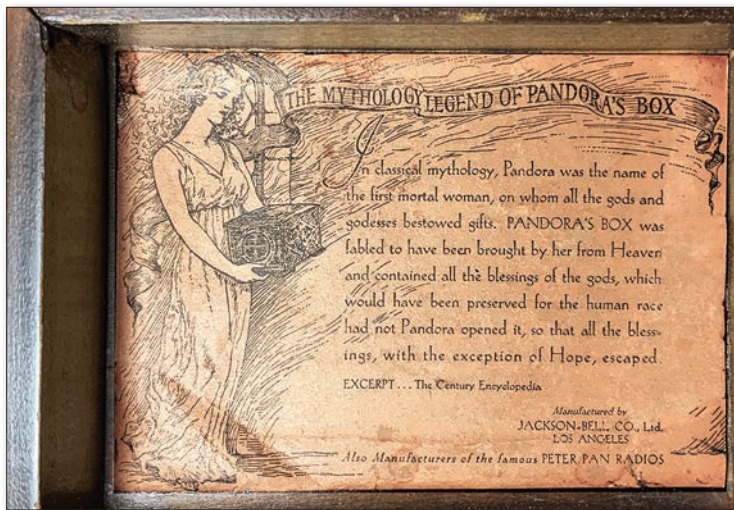 THE MYTHOLOGY LEGEND OF PANDORA'S BOX
In classical mythology, Pandora was the name of
the first mortal woman, on whom all the gods and
godesses bestowed gifts. PANDORA'S BOX was
fabled to have been brought by her from Heaven
and contained all the blessings of the gods, which
would have been preserved for the human race
had not Pandora opened it, so that all the bless-
ings, with the exception of Hope, escaped.
EXCERPT... The Century Encyclopedia
Manufactured by
JACKSON-BELL CO., Ltd.
LOS ANGELES
Also Manufacturers of the famous PETER PAN RADIOS